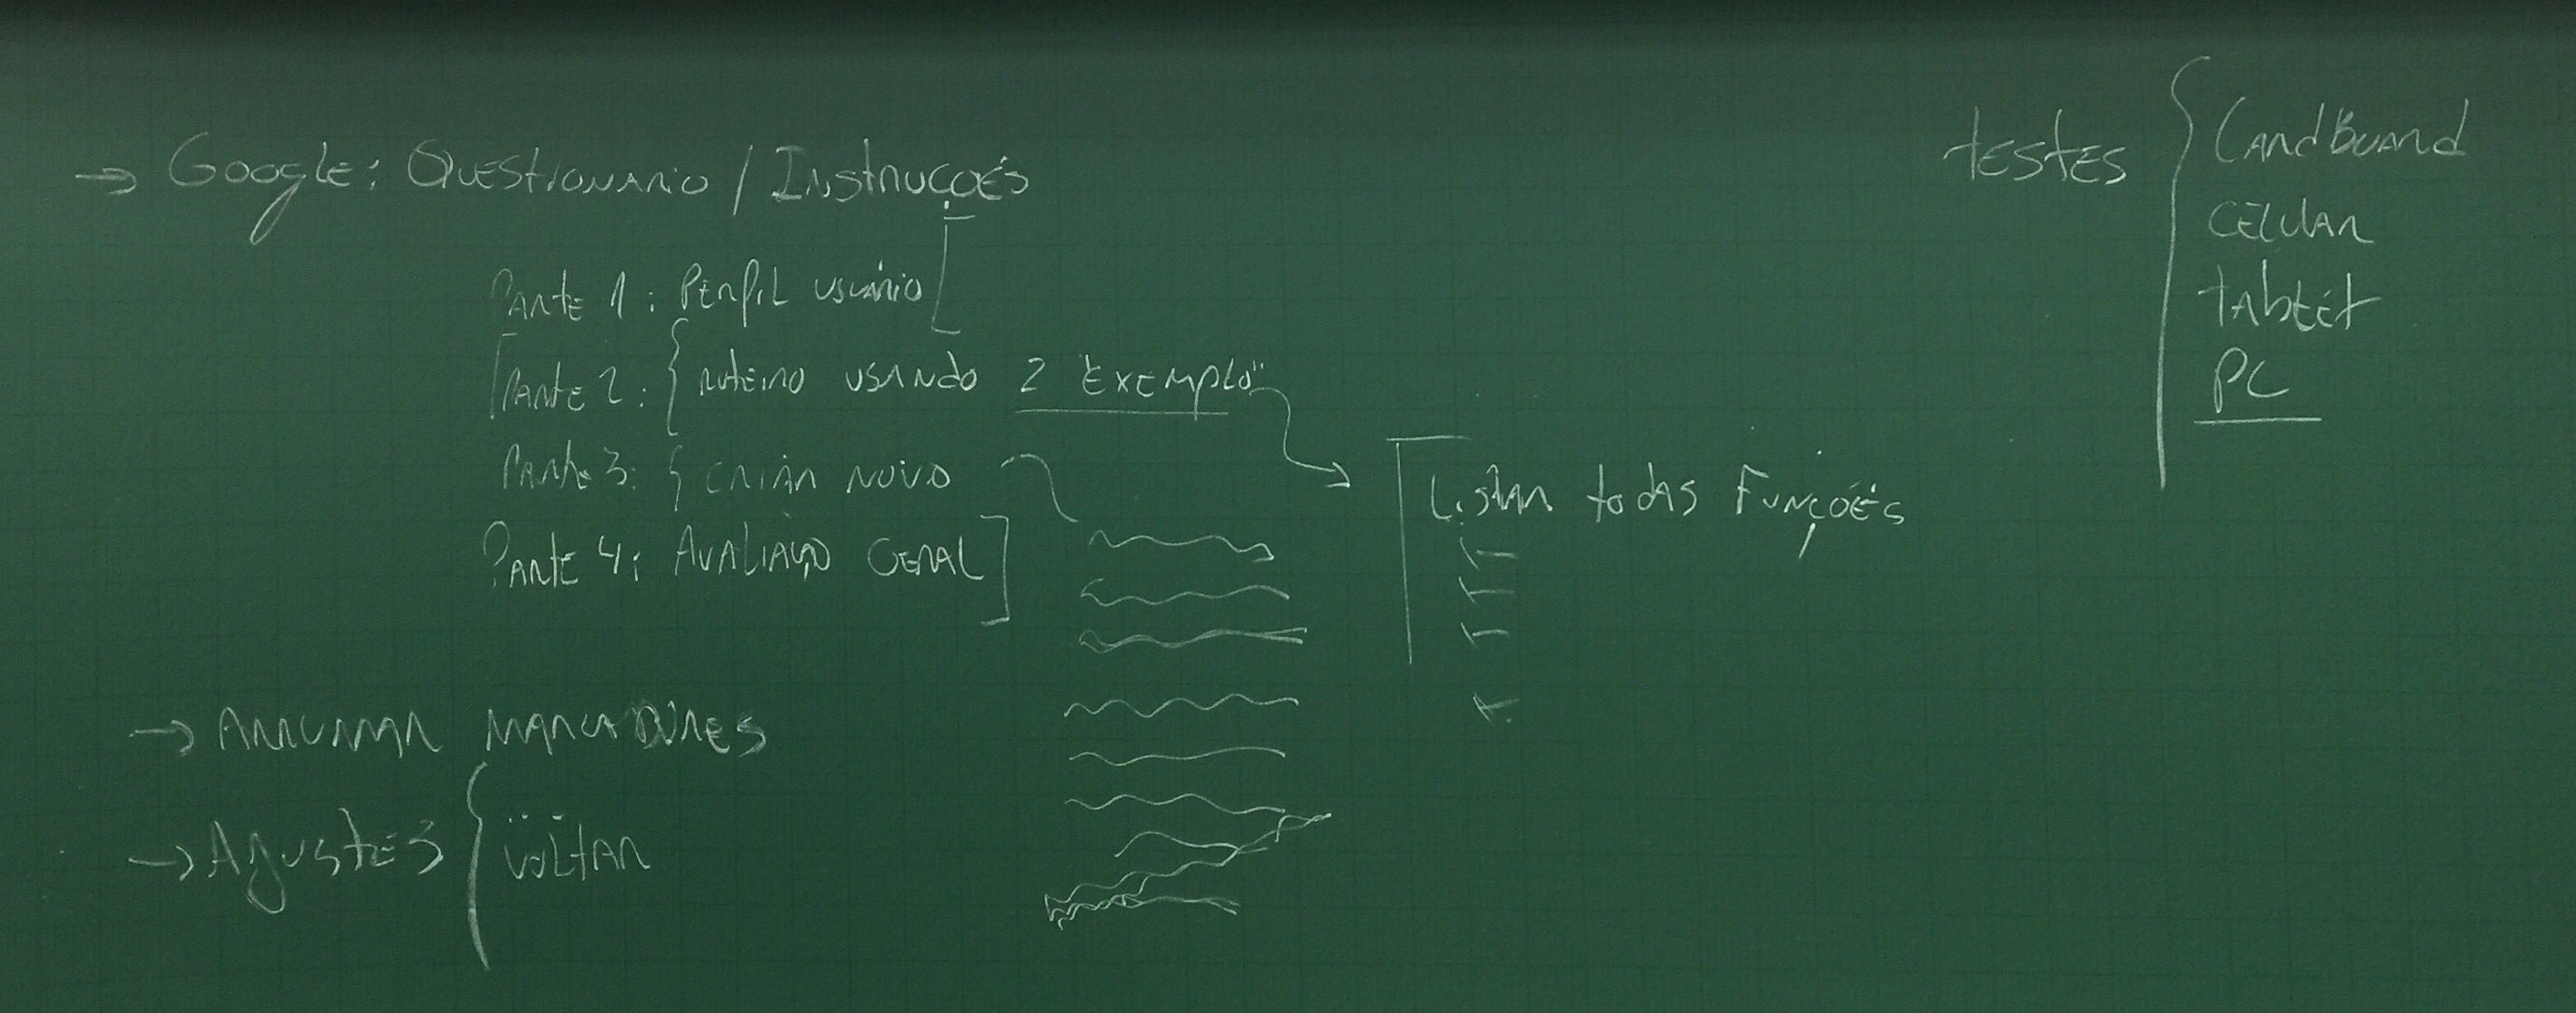 → Google: Questionario / Instruções
Parte 1: Perfil usuário
Parte 2: { roteiro usando 2 "Exemplo"
Parte 3: { criar novo
Parte 4: Avaliação Geral ]
Listar todas Funções
→ Arrumar marcadores
→ Ajustes { voltar
testes { CardBoard
Celular
tablét
PC